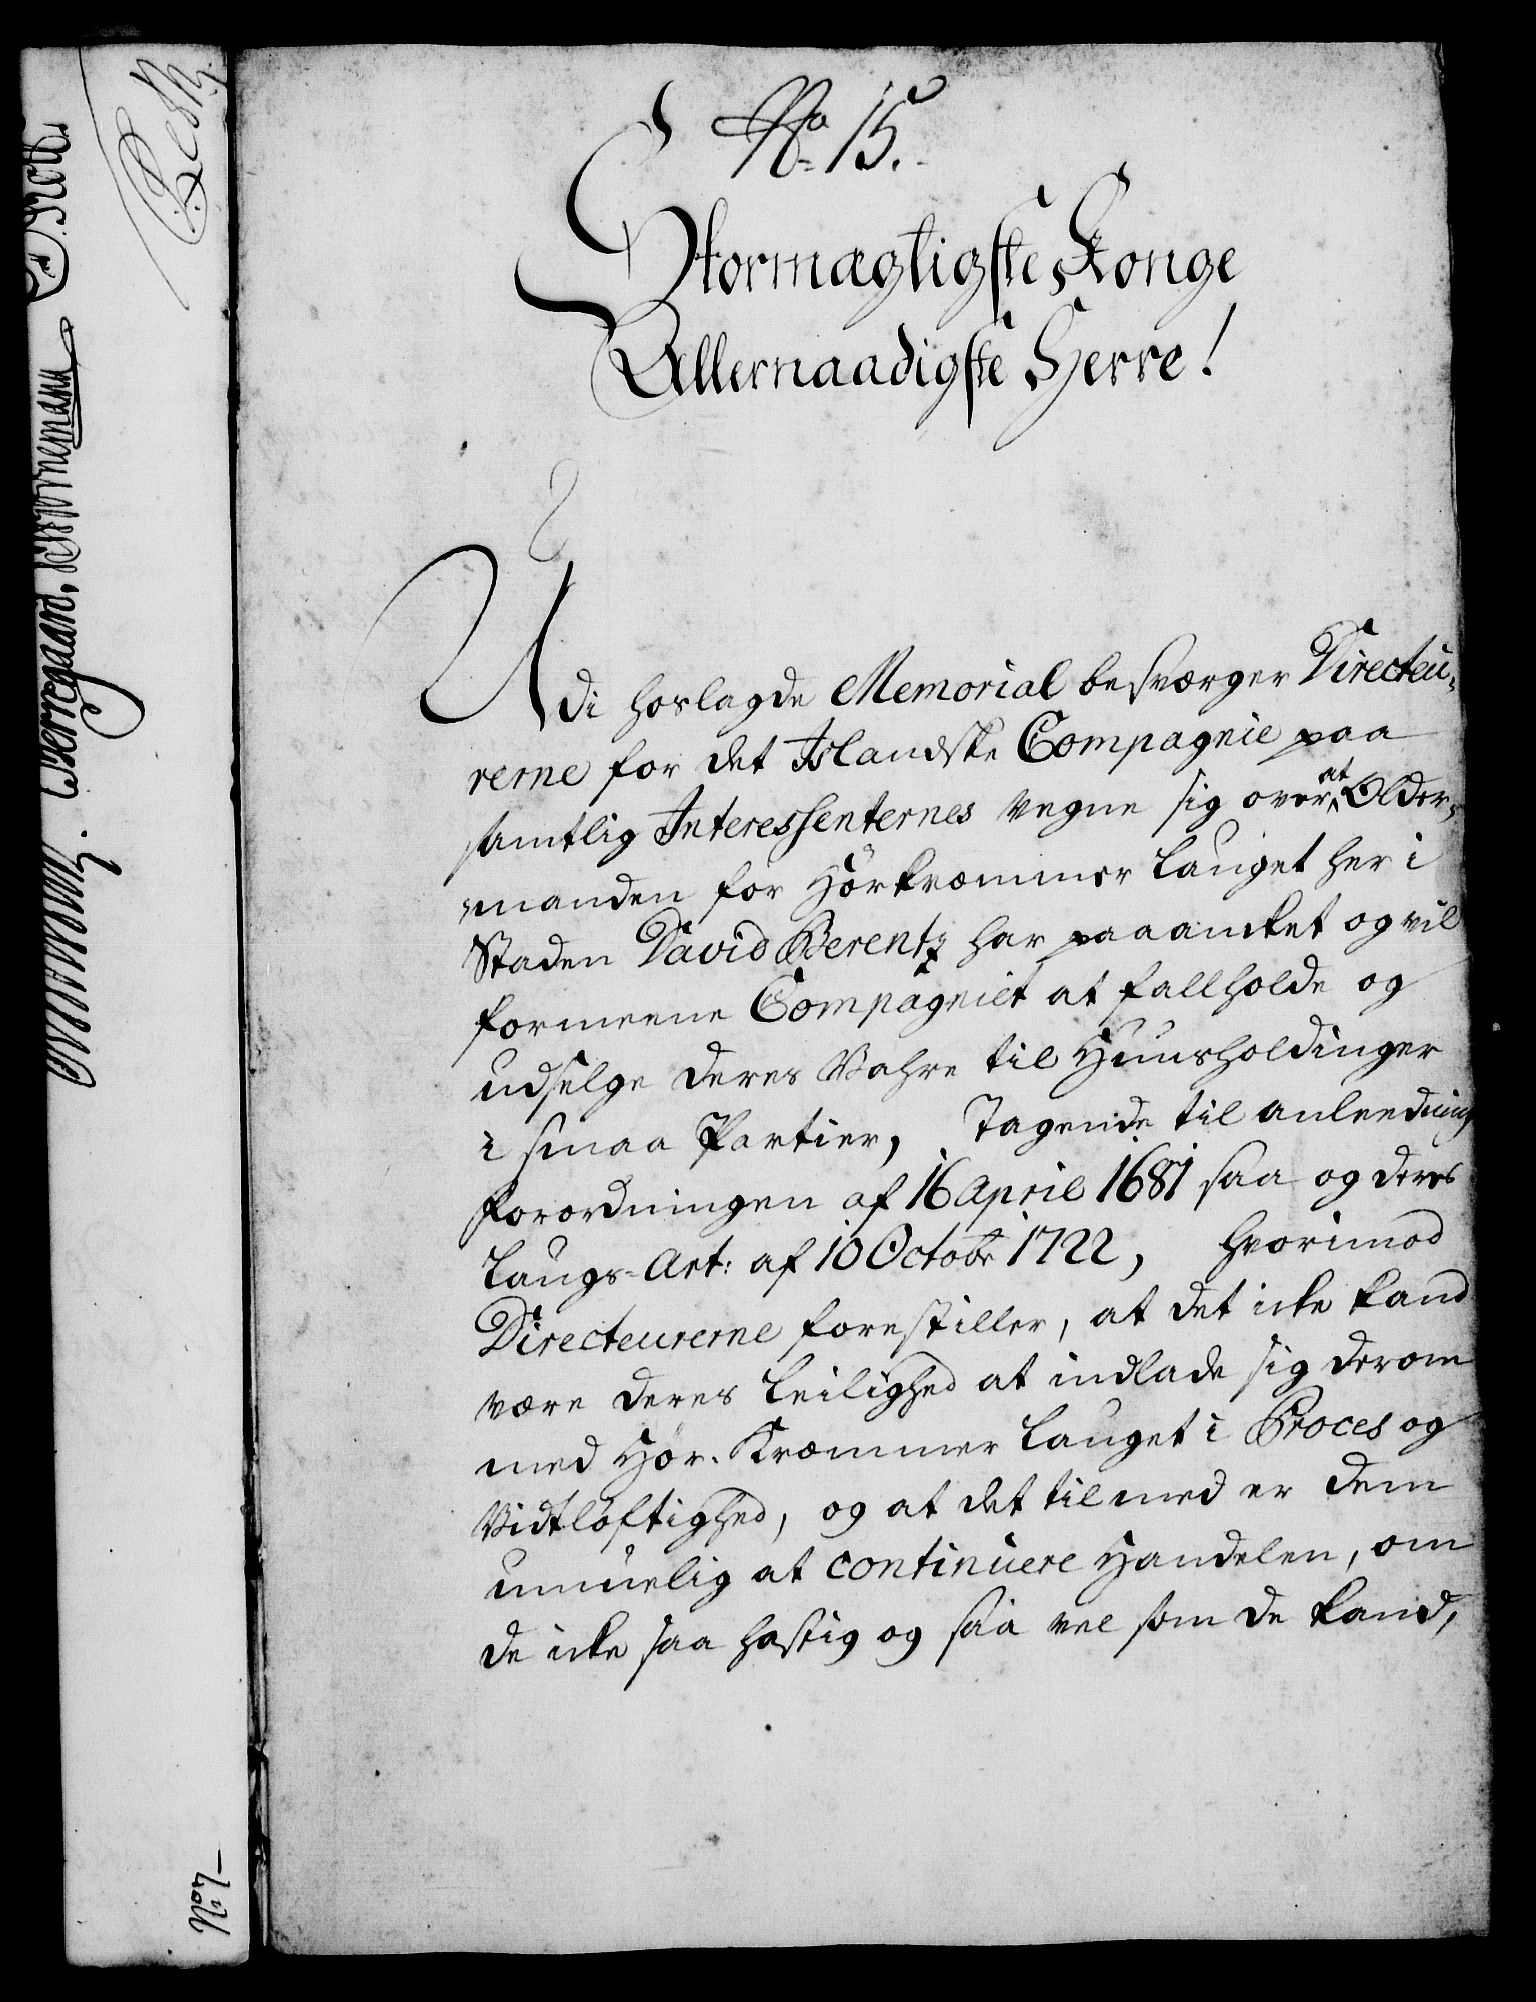 No 15.
Stormægtigste Konge
Allernaadigste Herre!
Udi hoslagde Memorial besværger Directeu-
rerne for det Islandske Compagnie paa
samtlig Interessenternes vegne sig over at Older-
manden for Hörkræmmer lauget her i
Staden David Berentz har paaancket og vil
formeene Compagniet at fallholde og
udselge deres Vahre til Huusholdinger
i smaa Partier, Tagende til anleedning
forordningen af 16 April 1681 saa og deres
Laugs-Art: af 10 Octobr 1722, hvorimod
Directeurerne forestiller, at det icke kand
være deres leilighed at indlade sig derom
med Hör-Kræmmer lauget i Proces og
Vidtløftighed, og at det tilmed er dem
umuelig at continuere Handelen, om
de icke saa hastig og saa vel som de kand,
No 7